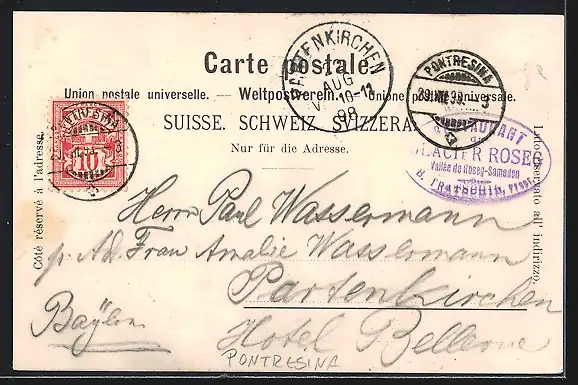 Carte postale.
PARTENKIRCHEN
AUG
10-12
99
PONTRESINA
29.VIII.99. 3
Union postale universelle. — Weltpostverein. — Unione postale universale.
SUISSE. SCHWEIZ. SVIZZERA.
Nur für die Adresse.
Côté réservé à l'adresse.
Lato riservato all' indirizzo.
PONTRESINA
10
RESTAURANT
du
GLACIER ROSEG
Vallée de Roseg-Samaden
Herrn Paul Wassermann
p. Ad. Frau Amalie Wassermann
Partenkirchen
Bayern
Hotel Bellevue
PONTRESINA